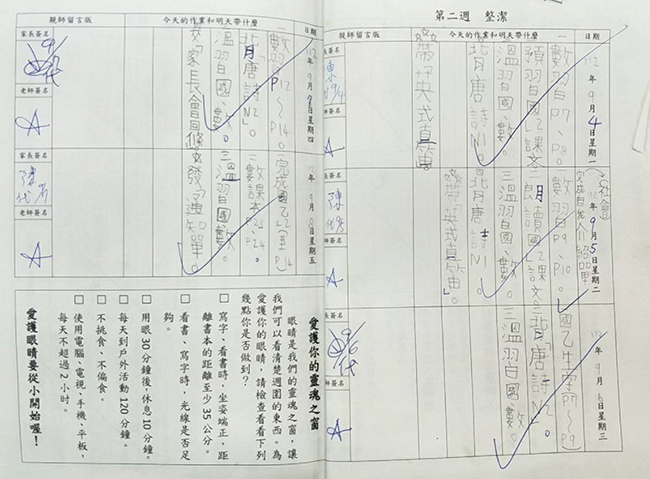 第二週　整潔
日期
今天的作業和明天帶什麼
親師留言版
112年9月4日星期一
一數習P7、P8。
二預習國乙L2課文
三溫習國、數。
四背唐詩N1。
☆帶中英式直笛
家長簽名
陳 9/4
老師簽名
A
112年9月5日星期二
一數習P9、P10。
二朗讀國乙L2課文
三溫習國、數。
四背唐詩N1。
☆帶英式直笛。
家長簽名
陳
老師簽名
A
9月6日星期三
一國乙生字
二背「唐詩」N2。
三溫習國、數。
9/6
老師簽名
A
親師留言版
今天的作業和明天帶什麼
日期
112年9月7日星期四
一數習P12～P14。
二背「唐詩」N2。
三溫習國、數。
☆「家長會回條」
家長簽名
老師簽名
A
星期五
一完成國乙L2
二數課本P23、P24。
三溫習國、數。
☆發「通知單」。
家長簽名
陳
老師簽名
A
愛護你的靈魂之窗
眼睛是我們的靈魂之窗，讓
我們可以看清楚週圍的東西。為
愛護你的眼睛，請檢查看看下列
幾點你是否做到？
□ 寫字、看書時，坐姿端正，距
離書本的距離至少 35 公分。
□ 看書、寫字時，光線是否足
夠。
□ 用眼 30 分鐘後，休息 10 分鐘。
□ 每天到戶外活動 120 分鐘。
□ 不挑食、不偏食。
□ 使用電腦、電視、手機、平板，
每天不超過 2 小時。
愛護眼睛要從小開始喔！